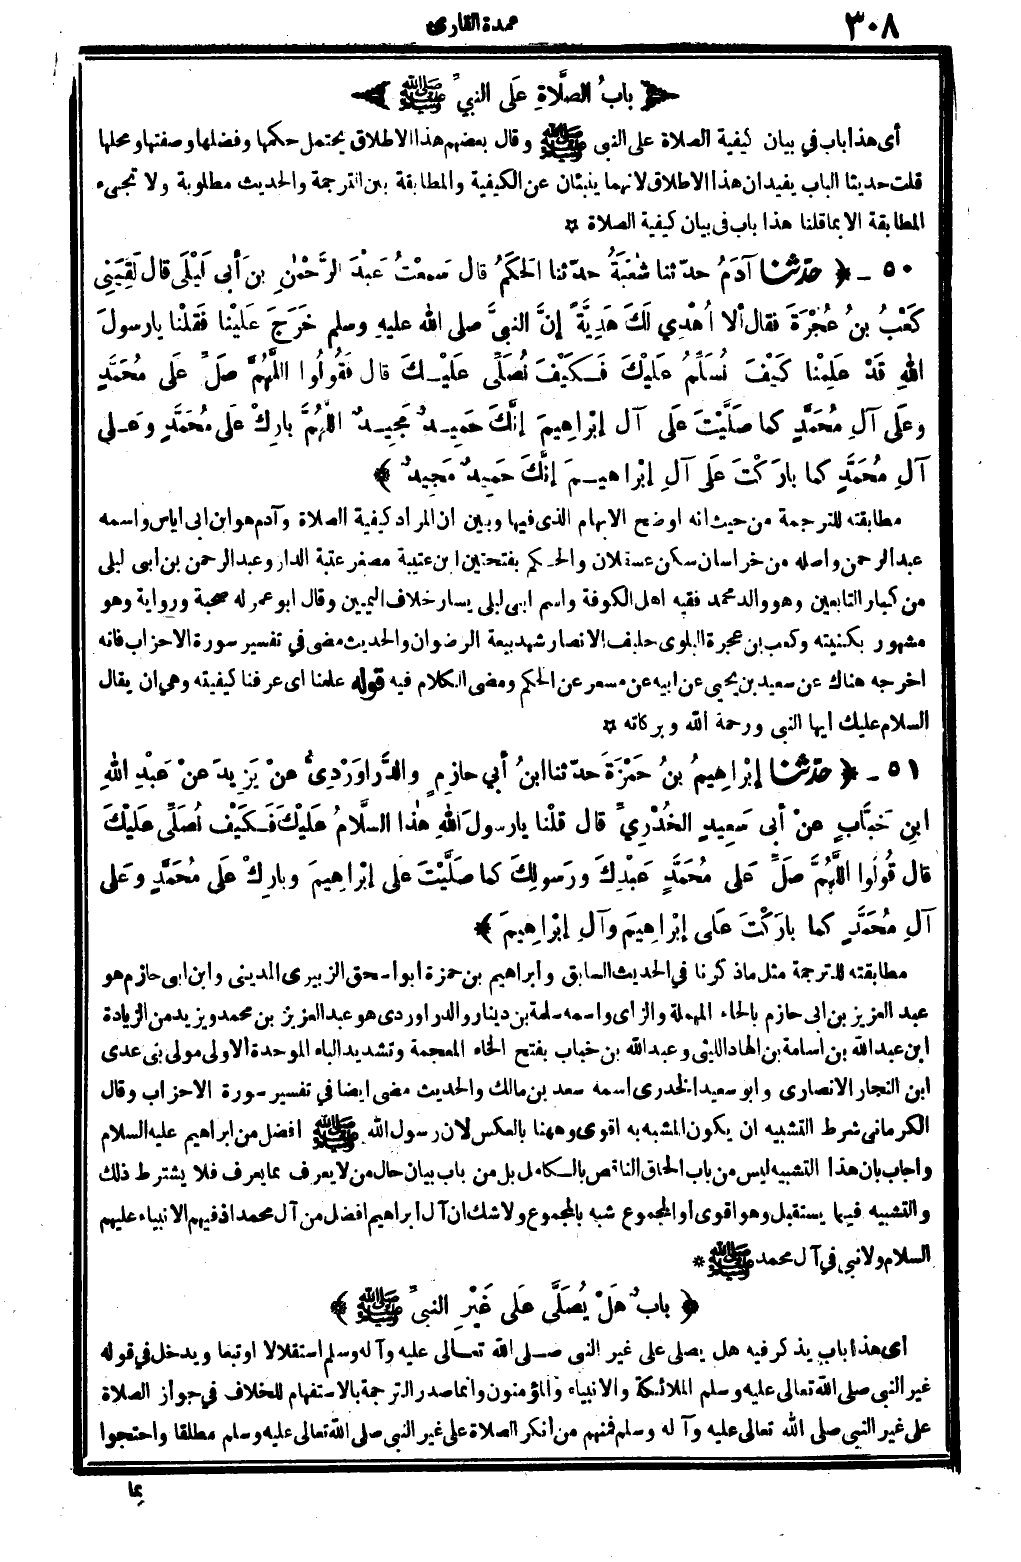 ٣٠٨
عمدة القارى
باب الصَّلاةِ عَلَى النبيِّ ﷺ
أى هذا باب في بيان كيفية الصلاة على النبى ﷺ وقال بعضهم هذا الاطلاق يحتمل حكمها وفضلها وصفتها ومحلها
قلت حديثا الباب يفيدان هذا الاطلاق لانهما ينبئان عن الكيفية والمطابقة بين الترجمة والحديث مطلوبة ولا تجىء
المطابقة الا بما قلنا هذا باب فى بيان كيفية الصلاة ¤
٥٠ - ﴿ حدّثنا آدَمُ حدّثنا شُعْبَةُ حدّثنا الحَكَمُ قال سَمِعْتُ عَبْدَ الرَّحْمٰنِ بنَ أبى لَيْلَى قال لَقِيَنِى
كَعْبُ بنُ عُجْرَةَ فقال ألا أُهْدِي لَكَ هَدِيَّةً إنَّ النبيَّ صلى الله عليهِ وسلم خَرَجَ عَلَيْنا فَقلْنا يارسولَ
اللهِ قَدْ عَلِمْنا كَيْفَ نُسَلِّمُ عَلَيْكَ فَكَيْفَ نُصَلِّى عَلَيْكَ قال فَقُولُوا اللَّهُمَّ صَلِّ عَلَى مُحَمَّدٍ
وعَلَى آلِ مُحَمَّدٍ كما صَلَّيْتَ عَلَى آلِ إبْراهِيمَ إنَّكَ حَمِيدٌ مَجِيدٌ اللَّهُمَّ بارِكْ عَلَى مُحَمَّدٍ وعَلى
آلِ مُحَمَّدٍ كما بارَكْتَ عَلَى آلِ إبْراهِيمَ إنَّكَ حَمِيدٌ مَجِيدٌ ﴾
مطابقته للترجمة من حيث انه اوضح الابهام الذى فيها وبين ان المراد كيفية الصلاة وآدم هو ابن ابى اياس واسمه
عبد الرحمن واصله من خراسان سكن عسقلان والحكم بفتحتين ابن عتيبة مصغر عتبة الدار وعبد الرحمن بن ابى ليلى
من كبار التابعين وهو والد محمد فقيه اهل الكوفة واسم ابى ليلى يسار خلاف اليمين وقال ابو عمر له صحبة ورواية وهو
مشهور بكنيته وكعب بن عجرة البلوى حليف الانصار شهد بيعة الرضوان والحديث مضى في تفسير سورة الاحزاب فانه
اخرجه هناك عن سعيد بن يحيى عن ابيه عن مسعر عن الحكم ومضى الكلام فيه قوله علمنا اى عرفنا كيفيته وهي ان يقال
السلام عليك ايها النبى ورحمة الله وبركاته ¤
٥١ - ﴿ حدّثنا إبْراهِيمُ بنُ حَمْزَةَ حدّثنا ابنُ أبي حازِمٍ والدَّراوَرْدِىُّ عنْ يَزِيدَ عنْ عَبْدِ اللهِ
ابنِ خَبَّابٍ عنْ أبى سَعِيدٍ الخُدْرِيِّ قال قلْنا يارسولَ اللهِ هٰذا السَّلامُ عَلَيْكَ فَكَيْفَ نُصَلِّى عَلَيْكَ
قال قُولُوا اللَّهُمَّ صَلِّ عَلَى مُحَمَّدٍ عَبْدِكَ ورَسولِكَ كما صَلَّيْتَ عَلَى إبْراهِيمَ وبارِكْ عَلَى مُحَمَّدٍ وعَلَى
آلِ مُحَمَّدٍ كما بارَكْتَ عَلَى إبْراهِيمَ وآلِ إبْراهِيمَ ﴾
مطابقته للترجمة مثل ماذكرنا في الحديث السابق وابراهيم بن حمزة ابو اسحق الزبيرى المدينى وابن ابى حازم هو
عبد العزيز بن ابى حازم بالحاء المهملة والزاى واسمه سلمة بن دينار والدراوردى هو عبد العزيز بن محمد ويزيد من الزيادة
ابن عبد الله بن اسامة بن الهاد الليثى وعبد الله بن خباب بفتح الخاء المعجمة وتشديد الباء الموحدة الاولى مولى بنى عدى
ابن النجار الانصارى وابو سعيد الخدرى اسمه سعد بن مالك والحديث مضى ايضا في تفسير سورة الاحزاب وقال
الكرمانى شرط التشبيه ان يكون المشبه به اقوى وههنا بالعكس لان رسول الله ﷺ افضل من ابراهيم عليه السلام
واجاب بان هذا التشبيه ليس من باب الحاق الناقص بالكامل بل من باب بيان حال من لا يعرف بما يعرف فلا يشترط ذلك
والتشبيه فيما يستقبل وهو اقوى او المجموع شبه بالمجموع ولا شك ان آل ابراهيم افضل من آل محمد اذ فيهم الانبياء عليهم
السلام ولا نبى في آل محمد ﷺ *
﴿ بابٌ هَلْ يُصَلَّى عَلَى غَيْرِ النبيِّ ﷺ ﴾
أى هذا باب يذكر فيه هل يصلى على غير النبى صلى الله تعالى عليه وآله وسلم استقلالا او تبعا ويدخل في قوله
غير النبي صلى الله تعالى عليه وسلم الملائكة والانبياء والمؤمنون وانما صدر الترجمة بالاستفهام للخلاف في جواز الصلاة
على غير النبى صلى الله تعالى عليه وآله وسلم فمنهم من أنكر الصلاة على غير النبي صلى الله تعالى عليه وسلم مطلقا واحتجوا
بما